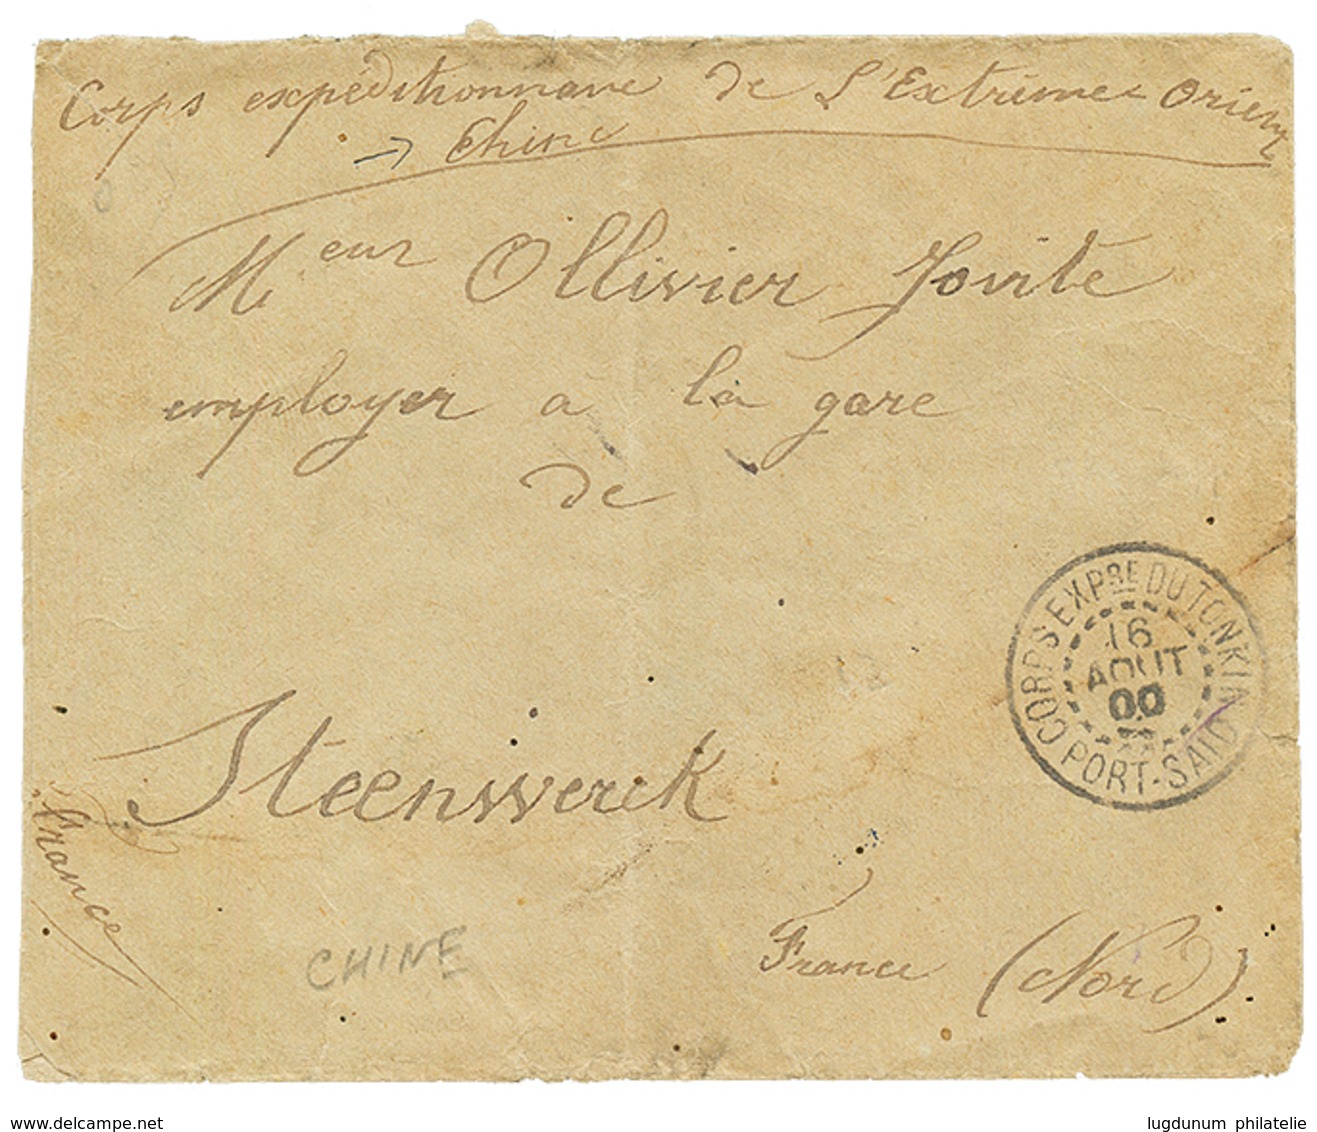 Corps expéditionnaire de L'Extrême Orient
→ Chine
Mieur Ollivier Jovite
employer à la gare
de
CORPS EXPRE DU TONKIN
16
AOUT
00
PORT-SAID
Steenwerck
France
France (Nord)
CHINE
www.delcampe.net
lugdunum philatelie